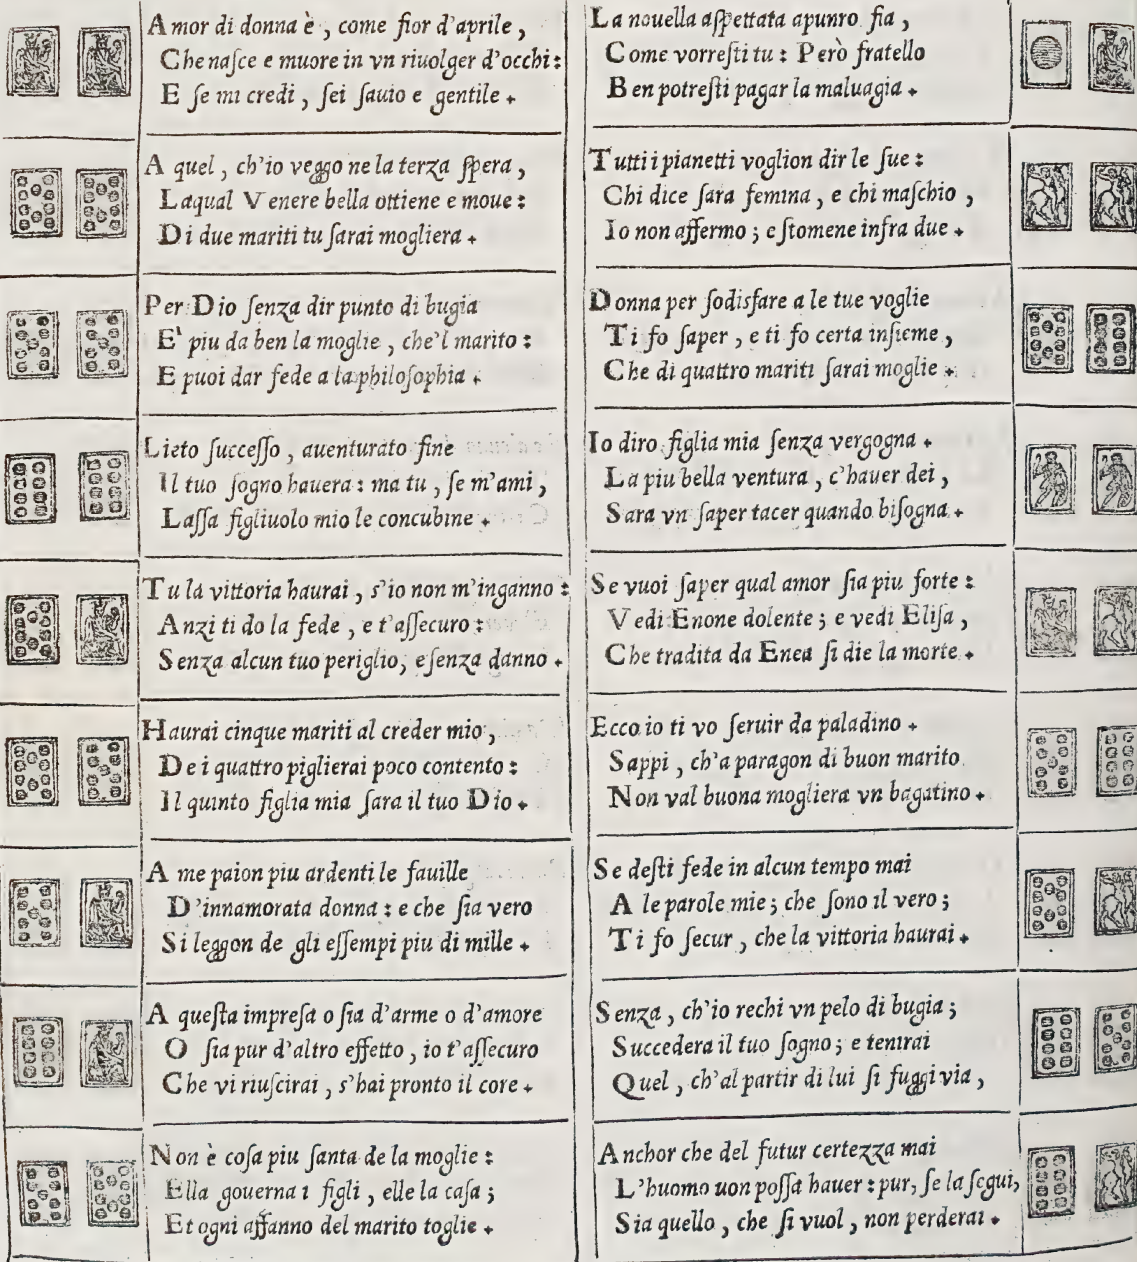 Amor di donna è, come fior d'aprile,
Che naſce e muore in vn riuolger d'occhi:
E ſe mi credi, ſei ſauio e gentile.
A quel, ch'io veggo ne la terza ſpera,
Laqual Venere bella ottiene e moue:
Di due mariti tu ſarai mogliera.
Per Dio ſenza dir punto di bugia
E' piu da ben la moglie, che'l marito:
E puoi dar fede a la philoſophia.
Lieto ſucceſſo, auenturato fine
Il tuo ſogno hauera: ma tu, ſe m'ami,
Laſſa figliuolo mio le concubine.
Tu la vittoria haurai, s'io non m'inganno:
Anzi ti do la fede, e t'aſſecuro:
Senza alcun tuo periglio, e ſenza danno.
Haurai cinque mariti al creder mio,
De i quattro piglierai poco contento:
Il quinto figlia mia ſara il tuo Dio.
A me paion piu ardenti le fauille
D'innamorata donna: e che ſia vero
Si leggon de gli eſſempi piu di mille.
A queſta impreſa o ſia d'arme o d'amore
O ſia pur d'altro effetto, io t'aſſecuro
Che vi riuſcirai, s'hai pronto il core.
Non è coſa piu ſanta de la moglie:
Ella gouerna i figli, elle la caſa;
Et ogni affanno del marito toglie.
La nouella aſpettata apunro fia,
Come vorreſti tu: Però fratello
Ben potreſti pagar la maluagia.
Tutti i pianetti voglion dir le ſue:
Chi dice ſara femina, e chi maſchio,
Io non affermo; e ſtomene infra due.
Donna per ſodisfare a le tue voglie
Ti fo ſaper, e ti fo certa inſieme,
Che di quattro mariti ſarai moglie.
Io diro figlia mia ſenza vergogna.
La piu bella ventura, c'hauer dei,
Sara vn ſaper tacer quando biſogna.
Se vuoi ſaper qual amor ſia piu forte:
Vedi Enone dolente; e vedi Eliſa,
Che tradita da Enea ſi die la morte.
Ecco io ti vo ſeruir da paladino.
Sappi, ch'a paragon di buon marito
Non val buona mogliera vn bagatino.
Se deſti fede in alcun tempo mai
A le parole mie; che ſono il vero;
Ti fo ſecur, che la vittoria haurai.
Senza, ch'io rechi vn pelo di bugia;
Succedera il tuo ſogno; e tenirai
Quel, ch'al partir di lui ſi fuggi via,
Anchor che del futur certezza mai
L'huomo uon poſſa hauer: pur, ſe la ſegui,
Sia quello, che ſi vuol, non perderai.